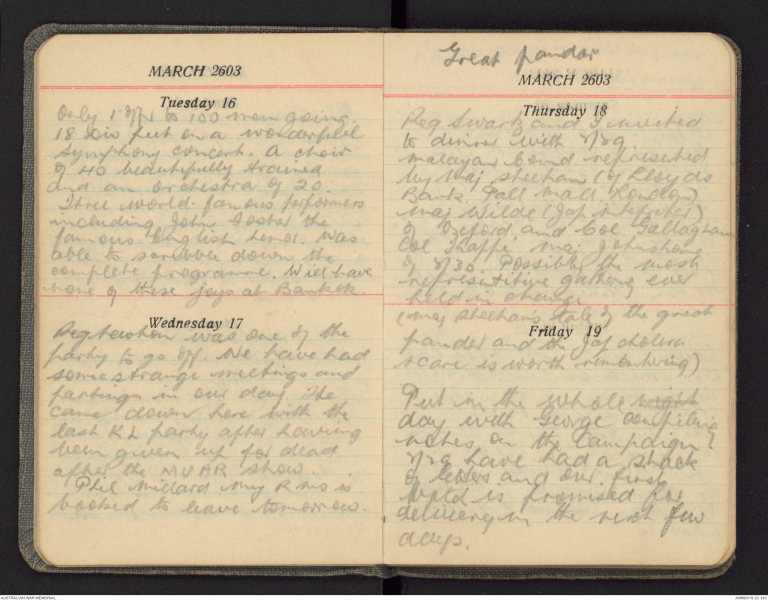 MARCH 2603
Tuesday 16
Only 1 off to 100 men going.
18 Div put on a wonderful
symphony concert. A choir
of 40 beautifully trained
and an orchestra of 20.
Three world famous performers
including John Foster the
famous English tenor. Was
able to scribble down the
complete programme. Will have
none of these joys at Bankok
Wednesday 17
Reg Newton was one of the
party to go off. We have had
some strange meetings and
partings in our day. He
came down here with the
last KL party after having
been given up for dead
after the MUAR show.
Phil Millard my R M O is
booked to leave tomorrow.
Great pandar
MARCH 2603
Thursday 18
Reg Swartz and I invited
to dinner with
malayan Comd represented
by Maj Sheehan (of Lloyds
Bank Pall Mall London)
Maj Wilde (Jap interpreter)
of Oxford and Col Gallaghan
Col Thaffe Maj Johnston
of 8/30. Possibly the most
represititive gathering ever
held in
(Maj Sheehan's tale of the great
pandar and the Jap cholera
scare is worth remembering)
Friday 19
Put in the whole
day with George compiling
notes on the campaign
have had a stack
of letters and our first
is promised for
delivery in the next few
days.
AUSTRALIAN WAR MEMORIAL